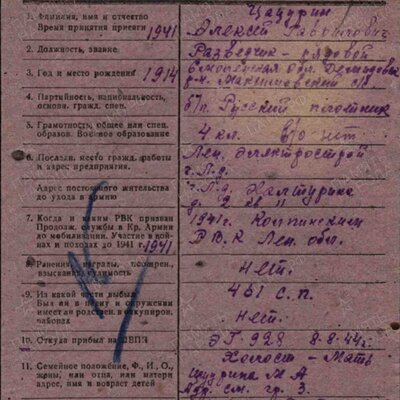 Цацурин
1. Фамилия, имя и отчество
Время принятия присяги 1941
Алексей Гаврилович
2. Должность, звание
Разведчик - рядовой
3. Год и место рождения 1914
Смоленская обл.
4. Партийность, национальность,
основн. гражд. спец.
б/п. Русский плотник
5. Грамотность, общее или спец.
образов. Военное образование
4 кл. в/о нет.
6. Последн. место гражд. работы
и адрес предприятия
Лен. Электрострой
г. Л-д.
Адрес постоянного жительства
до ухода в армию
г. Л-д. Халтурина
7. Когда и каким РВК призван
Продолж. службы в Кр. Армии
до мобилизации. Участие в вой-
нах и походах до 1941 г. 1941
1941г. Колпинским
Р В. К Лен. обл.
8. Ранения, награды,
взыскания, судимость
Нет.
9. Из какой части выбыл
Был ли в плену и окружении
имеет ли родств. в оккупиров.
районах
461 с.п.
Нет.
10. Откуда прибыл на ВПП
ЭГ 928 8.8.44г.
11. Семейное положение, Ф., И., О.,
жены, или отца, или матери
адрес, имя и возраст детей
Холост - Мать
М А
Адр. см. гр. 3.